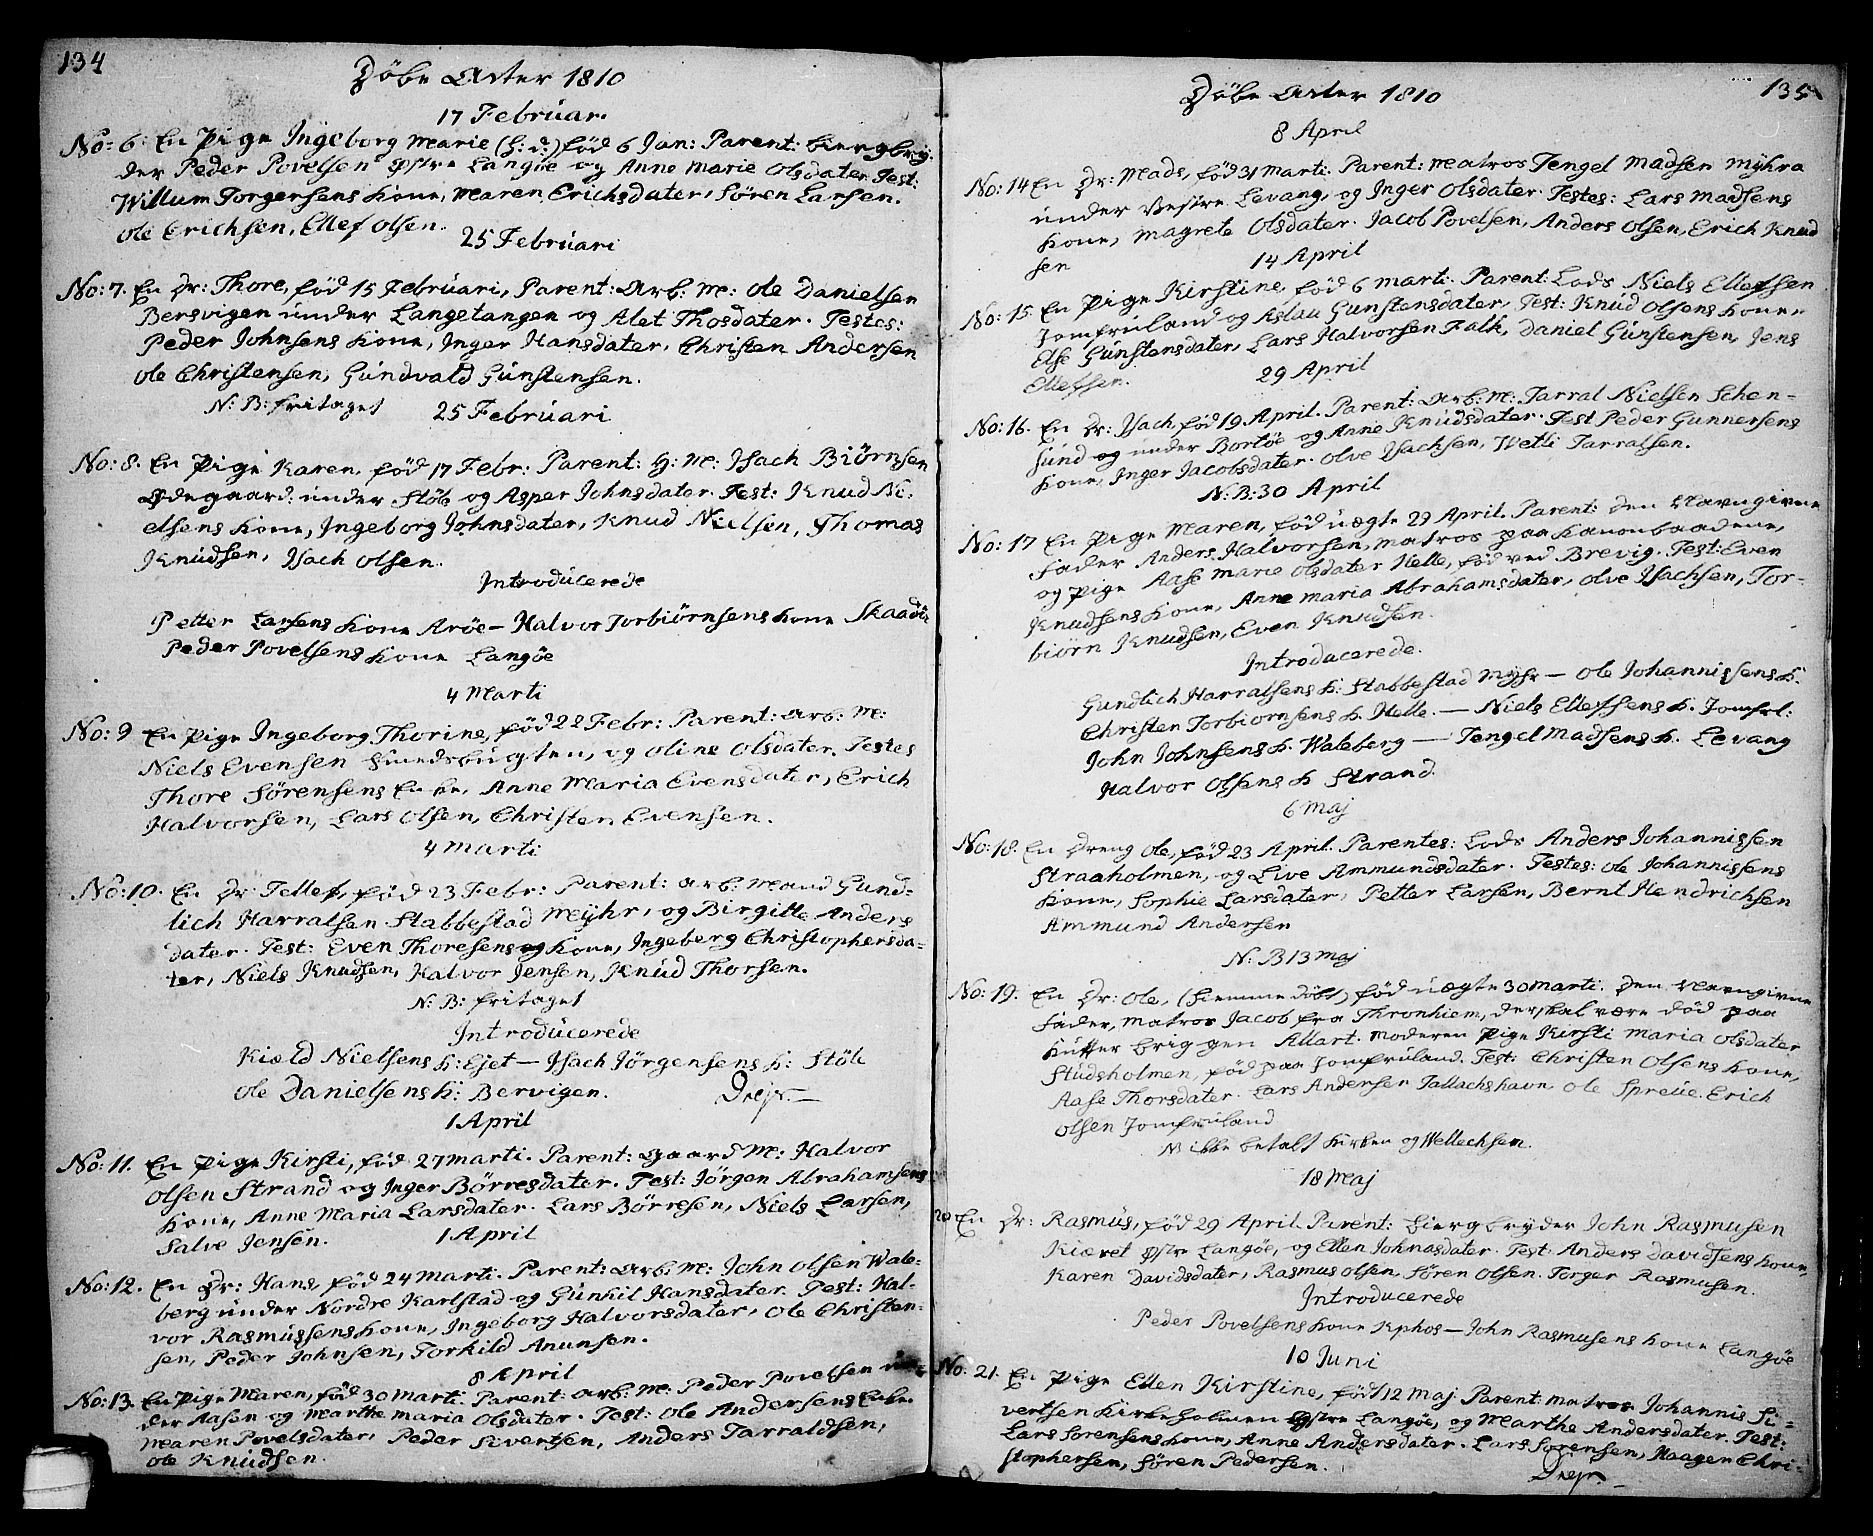 134
Døbe Acter 1810
17 Februar.
No: 6: En Pige Ingeborg Marie (H: d:) fød 6 Jan: Parent: Biergbrÿ-
der Peder Povelsen Østre Langøe og Anne Marie Olsdater. Test:
Willum Torgersens Kone, Maren Erichsdater, Søren Larsen.
Ole Erichsen, Ellef Olsen.
25 Februari
No: 7. En Dr: Thore, fød 15 Februari, Parent: Arb: M: Ole Danielsen
Bersvigen under Langetangen og Alet Thosdater. Testes:
Peder Johnsens Kone, Inger Hansdater, Christen Andersen
Ole Christensen, Gundvald Gunstensen.
N: B: fritaget
25 Februari
No: 8. En Pige Karen, fød 17 Febr: Parent: H: M: Isach Biörnsen
Ødegaard under Støle og Asper Johnsdater. Test: Knud Ni-
elsens Kone, Ingeborg Johnsdater, Knud Nielsen, Thomas
Knudsen, Isach Olsen.
Introducerede
Petter Larsens Kone Arøe - Halvor Torbiørnsens Kone Skaadøe
Peder Povelsens Kone Langøe
4 Marti
No: 9 En Pige Ingeborg Thorine, fød 22 Febr: Parent: Arb: M:
Niels Evensen Smedsbugten, og Oline Olsdater. Testes
Thore Sörensens Enke, Anne Maria Evensdater, Erich
Halvorsen, Lars Olsen, Christen Evensen.
4 Marti
No: 10. En Dr Tellef, fød 23 Febr: Parent: Arb: Mand Gund-
lich Harralsen Stabbestad Meÿhr, og Birgitte Anders
dater. Test: Even Thoresens Kone, Ingeberg Christophersda-
ter, Niels Knudsen, Halvor Jensen, Knud Thorsen.
N: B: fritaget
Introducerede
Kiæld Nielsens K: Ejet - Isach Jörgensens K: Stöle
Ole Danielsens K: Bervigen.
Dreyr.
1 April
No: 11. En Pige Kirsti, fød 27 Marti. Parent: Gaard M: Halvor
Olsen Strand og Inger Börresdater. Test: Jörgen Abrahamsens
Kone, Anne Maria Larsdater. Lars Börresen, Niels Larsen,
Salve Jensen.
1 April
No: 12. En Dr: Hans, fød 24 Marti. Parent: Arb: M: John Olsen Wale-
berg under Nordre Karlstad og Gunkil Hansdater. Test: Hal-
vor Rasmussens Kone, Ingeborg Halvorsdater, Ole Christen-
sen, Peder Johnsen, Torkild Anunsen.
8 April
No: 13. En Pige Maren, fød 30 Marti. Parent: Arb: M: Peder Povelsen un-
der Aasen og Marthe Maria Olsdater. Test: Ole Andersens Enke
Maren Povelsdater, Peder Sivertsen, Anders Tarraldsen,
Ole Knudsen.
135
Døbe Acter 1810
8 April
No: 14 En Dr: Mads, fød 31 Marti. Parent: Matros Tengel Madsen Mÿhra
under Vestre Levang, og Inger Olsdater. Testes: Lars Madsens
Kone, Magrete Olsdater. Jacob Povelsen, Anders Olsen, Erich Knud
sen
14 April
No: 15. En Pige Kirstine, fød 6 Marti. Parent: Lods Niels Ellefsen
Jomfruland og Aslau Gunstensdater, Test: Knud Olsens Kone,
Else Gunstensdater, Lars Halvorsen Falk, Daniel Gunstensen, Jens
Ellefsen.
29 April
No: 16. En Dr: Isach, fød 19 April. Parent: Arb: M: Tarral Nielsen Schen-
sund og under Bortøe og Anne Knudsdater. Test Peder Gunnersens
Kone, Inger Jacobsdater. Olve Isachsen, Wetli Tarralsen.
N: B: 30 April
No: 17 En Pige Maren, fød uægte 29 April. Parent: Den Navngivne
Fader Anders Halvorsen, Matros paa Kanonbaadene,
og Pige Aase Marie Olsdater Helle, fød ved Brevig. Test: Even
Knudsens Kone, Anne Maria Abrahamsdater, Olve Isachsen, Tor-
biørn Knudsen, Even Knudsen.
Introducerede.
Gundlich Harralsens K: Stabbestad Myhr - Ole Johannissens K.
Christen Torbiornsens K. Helle. - Niels Ellefsens K. Jomfrl:
John Johnsens K. Waleberg - Tengel Madsens K. Levang
Halvor Olsens K Strand.
6 Maj
No: 18. En Dreng Ole, fød 23 April. Parentes: Lods Anders Johannissen
Straaholmen, og Live Ammundsdater. Testes: Ole Johannissens
Kone, Sophie Larsdater, Petter Larsen, Bernt Hendrichsen
Ammund Andersen
N: B 13 Maj
No: 19. En Dr: Ole, (hiemme døbt) fød uægte 30 Marti. Den Navngivne
Fader, Matros Jacob fra Thronhiem, der skal være død paa
Kutter Briggen Allart. Moderen Pige Kirsti Maria Olsdater
Studsholmen, fød paa Jomfruland. Test: Christen Olsens Kone,
Aase Thorsdater. Lars Andersen Tallachshavn Ole Spreue. Erich
Olsen Jomfruland
N ikke betalt Kirken og Wellechsen.
18 Maj
20 En Dr: Rasmus, fød 29 April. Parent: Bierg brÿder John Rasmusen
Kiæret Østre Langøe, og Ellen Johnasdater. Test: Anders Davidsens Kone,
Karen Davidsdater, Rasmus Olsen, Søren Olsen. Torger Rasmusen.
Introducerede
Peder Povelsens Kone Kphos - John Rasmusens Kone Langøe
10 Juni
No: 21. En Pige Ellen Kirstine, fød 12 Maj. Parent: Matros Johannis Si-
vertsen Kirkeholmen Østre Langøe, og Marthe Andersdater. Test:
Lars Sorensens Kone, Anne Andersdater. Lars Sorensen, Haagen Chri-
stophersen, Søren Pedersen.
Dreyr.